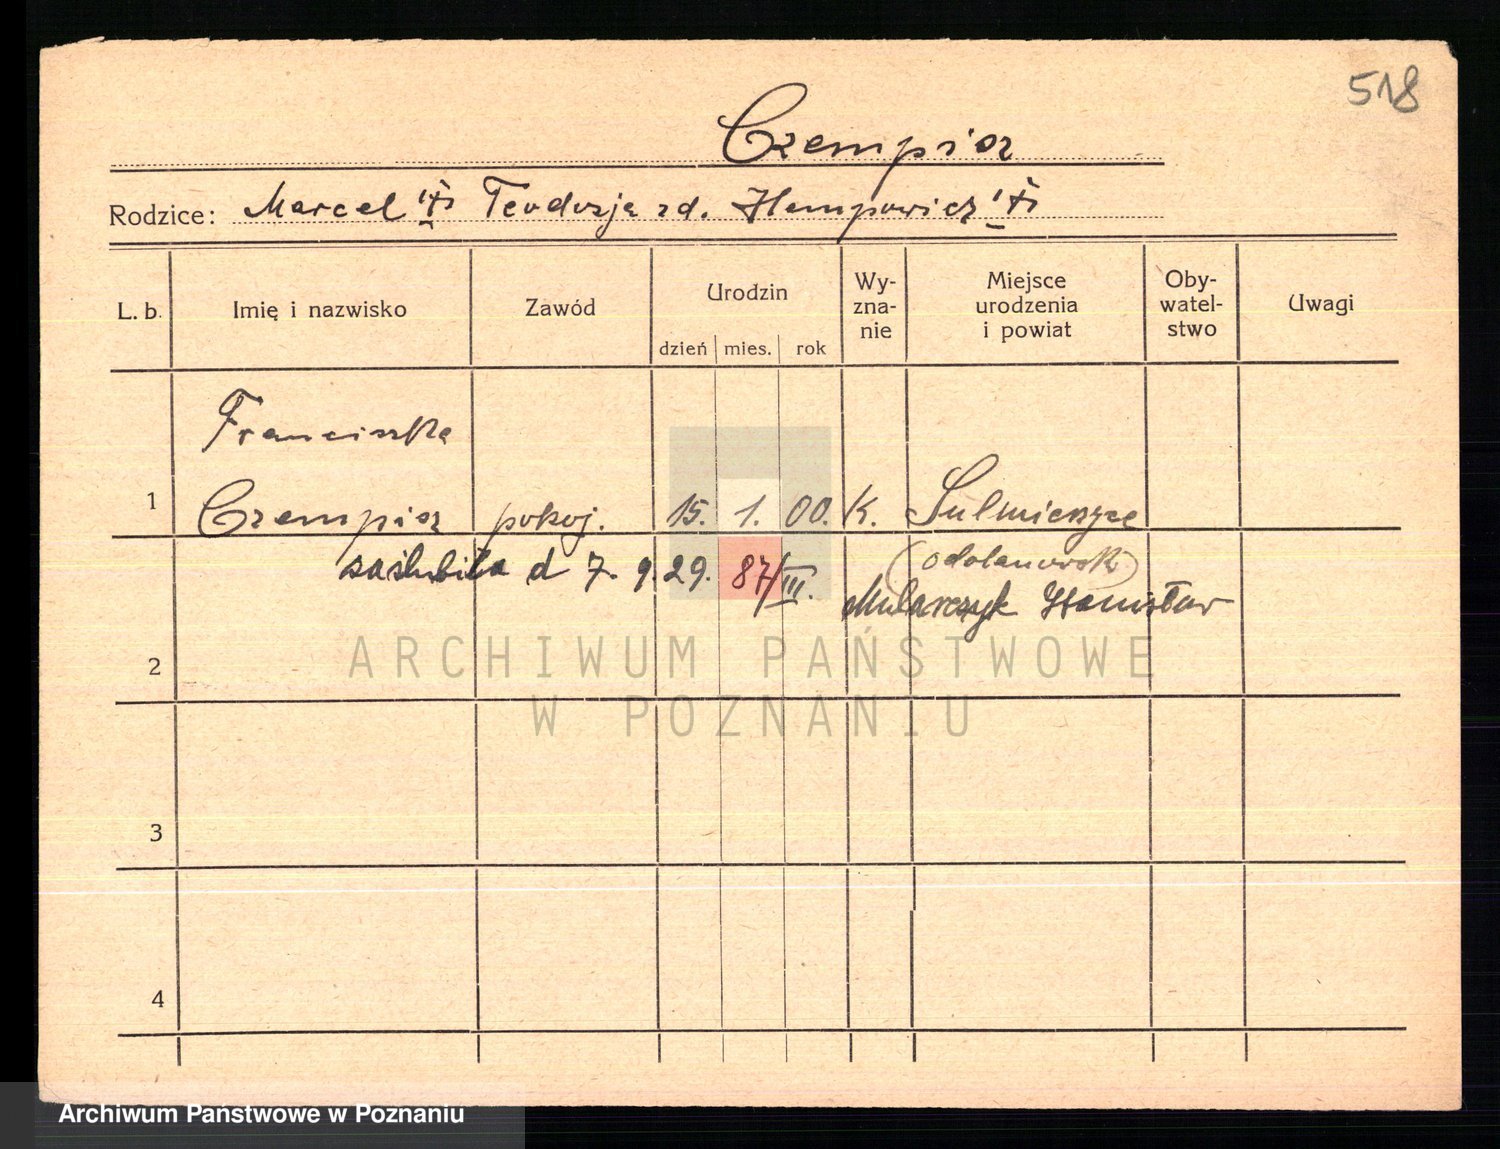 518
Czempisz
Rodzice: Marcel Teodozja zd. Hempowicz
L. b. Imię i nazwisko Zawód Urodzin Wy-zna-nie Miejsce urodzenia i powiat Oby-watel-stwo Uwagi
dzień mies. rok
Franciszka
1 Czempisz pokoj. 15. 1. 00. K. Sulmierzyce
(odolanowski)
zaślubiła d 7. 9. 29. 87/III. Mularczyk Stanisław
2
ARCHIWUM PAŃSTWOWE
W POZNANIU
3
4
Archiwum Państwowe w Poznaniu